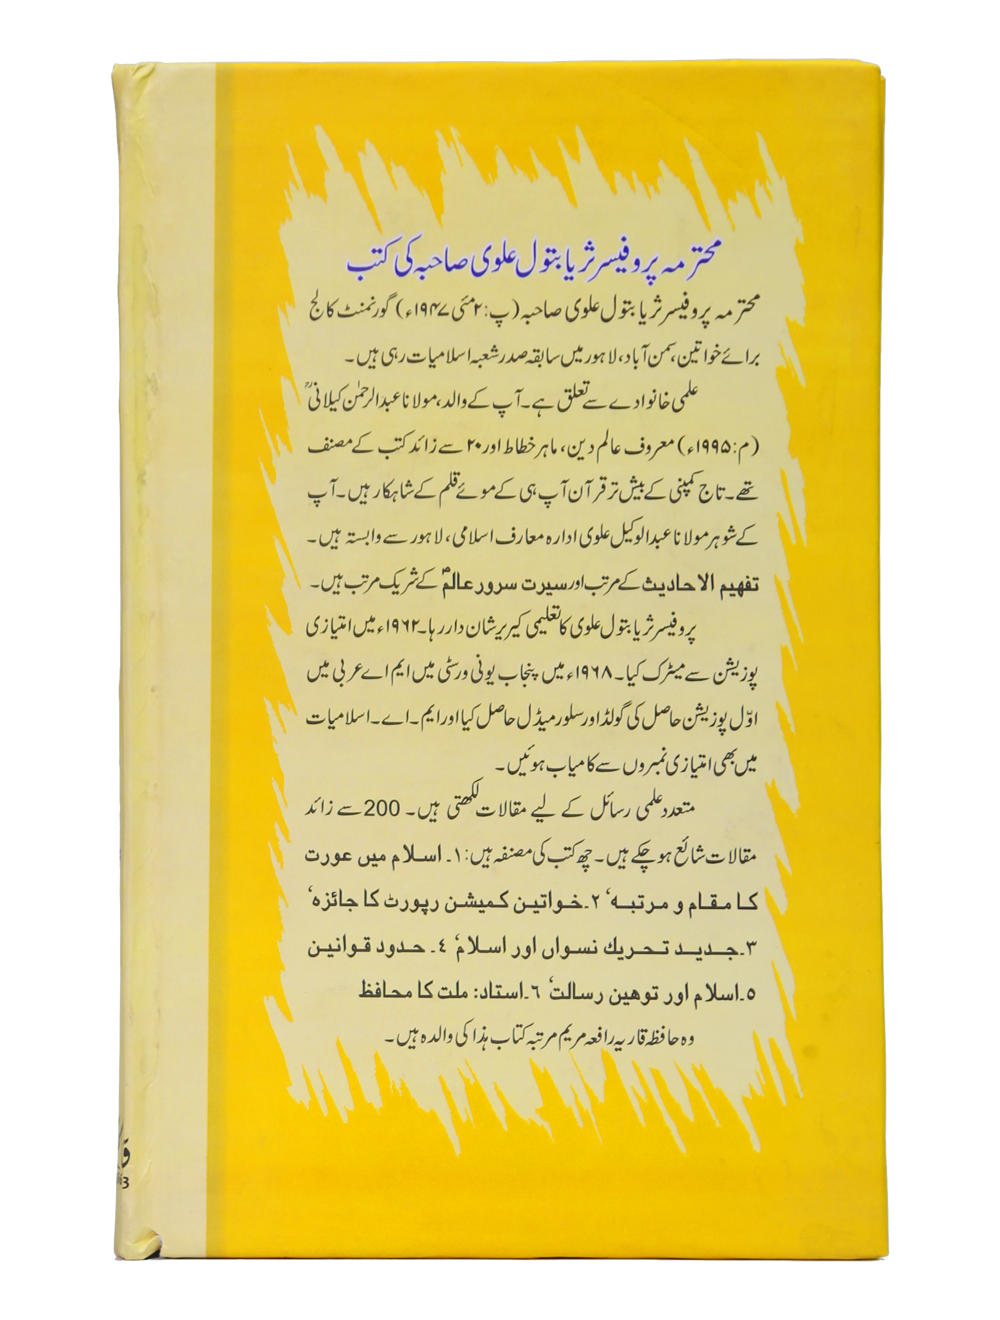 محترمہ پروفیسر ثریا بتول علوی صاحبہ کی کتب
محترمہ پروفیسر ثریا بتول علوی صاحبہ (پ: ۲ مئی ۱۹۴۷ء) گورنمنٹ کالج
برائے خواتین، سمن آباد، لاہور میں سابقہ صدر شعبہ اسلامیات رہی ہیں۔
علمی خانوادے سے تعلق ہے۔ آپ کے والد، مولانا عبدالرحمٰن کیلانیؒ
(م: ۱۹۹۵ء) معروف عالم دین، ماہر خطاط اور ۲۰ سے زائد کتب کے مصنف
تھے۔ تاج کمپنی کے بیش تر قرآن آپ ہی کے موئے قلم کے شاہکار ہیں۔ آپ
کے شوہر مولانا عبدالوکیل علوی ادارہ معارف اسلامی، لاہور سے وابستہ ہیں۔
تفہیم الاحادیث کے مرتب اور سیرت سرور عالمؐ کے شریک مرتب ہیں۔
پروفیسر ثریا بتول علوی کا تعلیمی کیریر شان دار رہا۔ ۱۹۶۲ء میں امتیازی
پوزیشن سے میٹرک کیا۔ ۱۹۶۸ء میں پنجاب یونی ورسٹی میں ایم اے عربی میں
اوّل پوزیشن حاصل کی گولڈ اور سلور میڈل حاصل کیا اور ایم۔اے۔ اسلامیات
میں بھی امتیازی نمبروں سے کامیاب ہوئیں۔
متعدد علمی رسائل کے لیے مقالات لکھتی ہیں۔ 200 سے زائد
مقالات شائع ہو چکے ہیں۔ چھ کتب کی مصنفہ ہیں: ۱۔ اسلام میں عورت
کا مقام و مرتبہ‘ ۲۔خواتین کمیشن رپورٹ کا جائزہ‘
۳۔جدید تحریك نسواں اور اسلام‘ ٤۔ حدود قوانین
۵۔اسلام اور توهین رسالت‘ ٦۔استاد: ملت کا محافظ
وہ حافظہ قاریہ رافعہ مریم مرتبہ کتاب ہذا کی والدہ ہیں۔